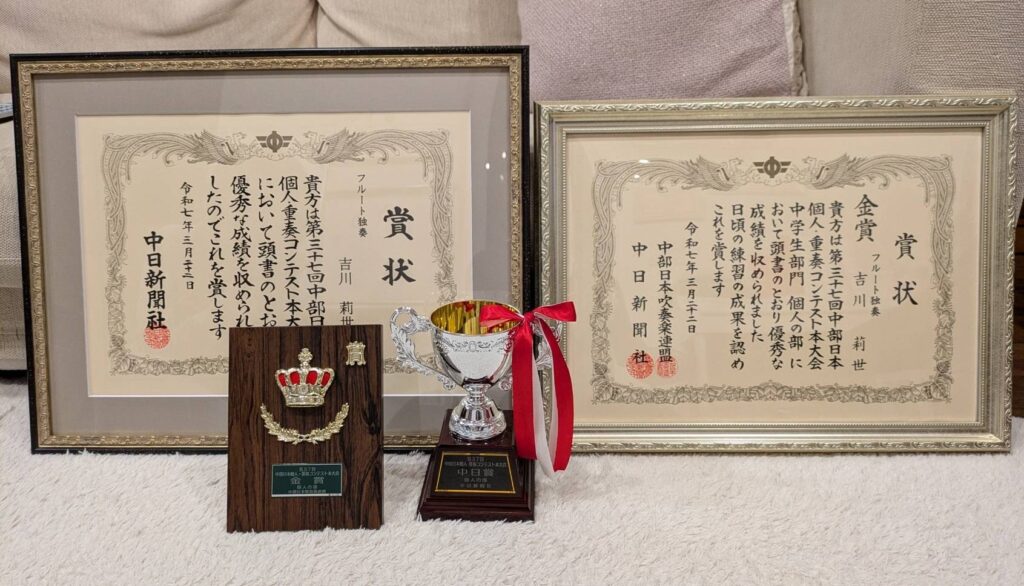 賞状
フルート独奏
吉川 莉世
貴方は第三十七回中部日
個人重奏コンテスト本大
において頭書のとお
優秀な成績を収められ
したのでこれを賞します
令和七年三月二十二日
中日新聞社
賞状
金賞
フルート独奏
吉川 莉世
貴方は第三十七回中部日本
個人・重奏コンテスト本大会
中学生部門 個人の部 に
おいて頭書のとおり優秀な
成績を収められました
日頃の練習の成果を認め
これを賞します
令和七年三月二十二日
中部日本吹奏楽連盟
中日新聞社
賞
第37回
中部日本個人・重奏コンテスト本大会
金賞
個人の部
第37回
中部日本個人・重奏コンテスト本大会
中日賞
個人の部
中日新聞社